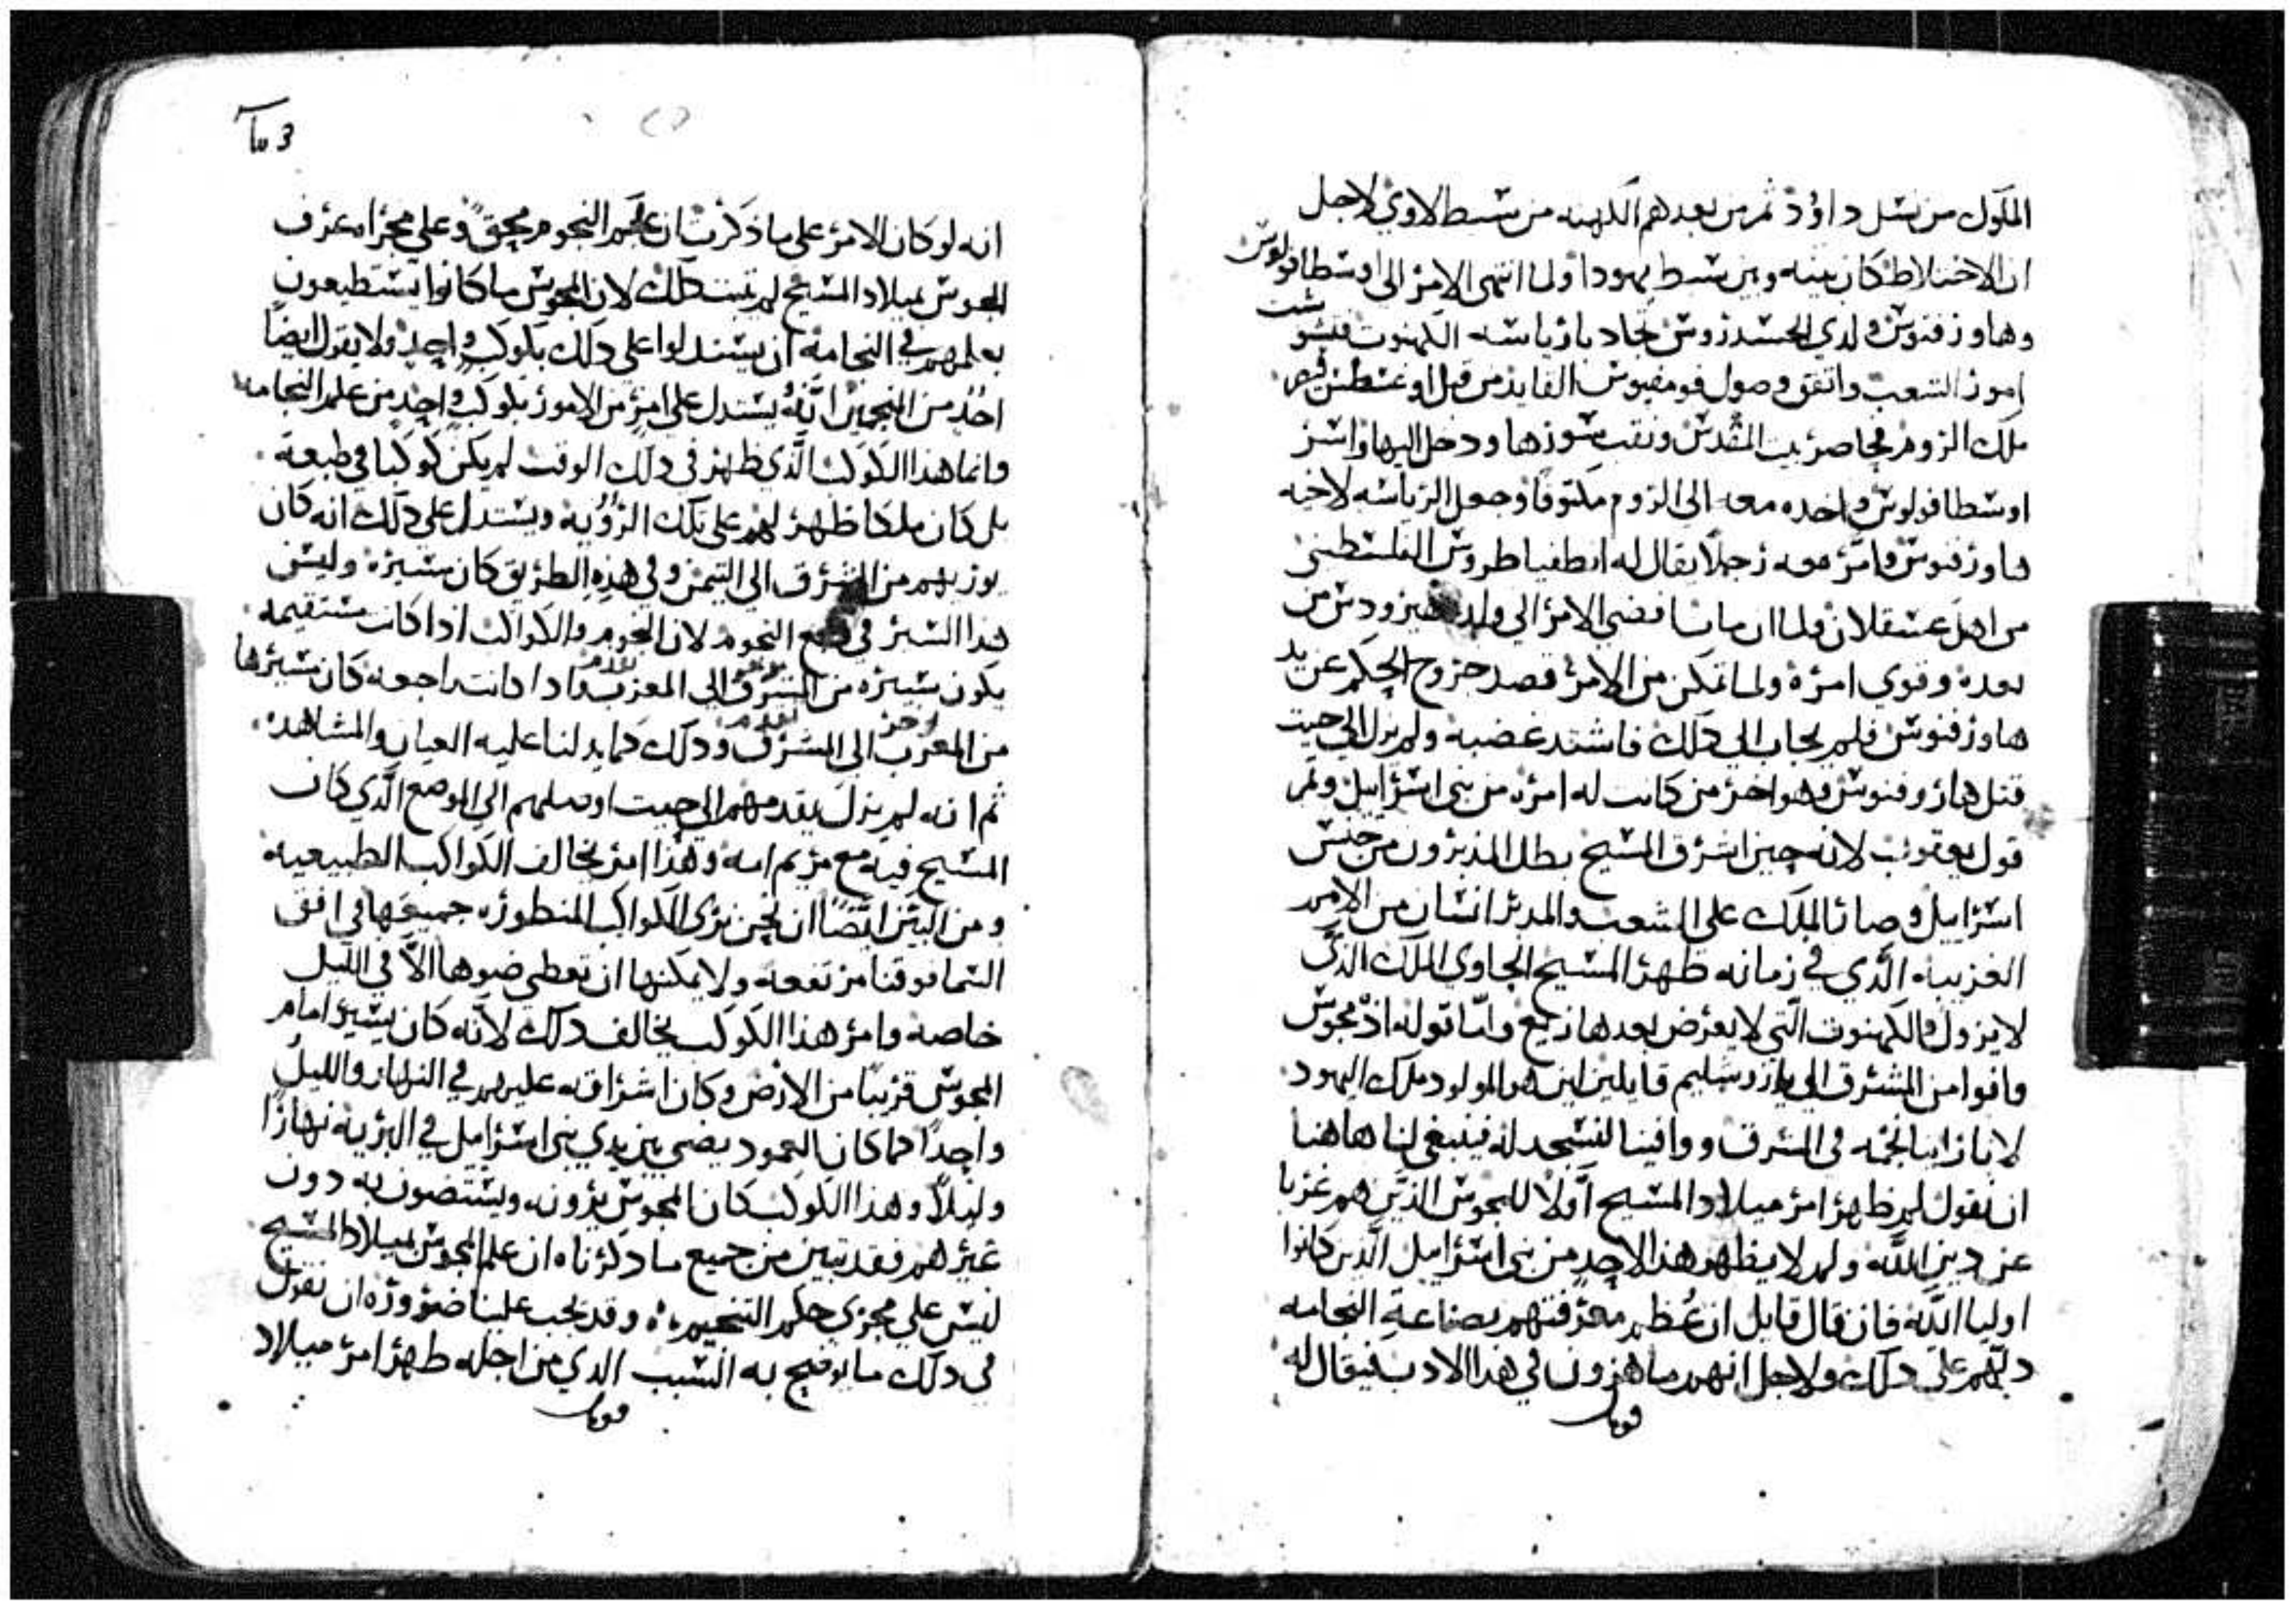 الملوك من نسل داوُد ثم من بعدهم الكهنه من سبط لاوي لاجل
ان الاختلاط كان بينه وبين سبط يهودا ولما انتهى الامر الى اوسطافولوس
وهاورقنوس ولدي الحسدروس تجادبا رياسه الكهنوت فتشوشت
امور الشعب واتفق وصول فومفيوس القايد من قبل اوغسطس قيصر
ملك الروم فحاصر بيت المقدس ونقب سورها ودخل اليها واسر
اوسطافولوس واخده معه الى الروم مكتوفا وجعل الرياسه لاخيه
هاورقنوس وامر معه رجلا يقال له انطفياطروس الفلسطني
من اهل عسقلان ولما ان مات افضي الامر الي ولده هيرودس من
بعده وقوي امره ولما تمكن من الامر قصد خروج الحكم عن يد
هاورقنوس فلم يجاب الي دلك فاشتد غضبه ولم يزل الي حيت
قتل هاروقنوس وهو اخر من كانت له امره من بني اسراييل وتم
قول يعقوب لانه حين اشرق المسيح بطل المدبرون من جنس
اسراييل وصار الملك على الشعب والمدبر انسان من الامم
الغريبه الَّدي في زمانه ظهر المسيح الحاوي الملك الدي
لا يزول والكهنوت الَّتي لا يعرض بعدها زيغ وامَّا قوله ادْ مجوس
وافوا من المشرق الي ياروسليم قايلين اين هو المولود ملك اليهود
لانا راينا نجمه في المشرق ووافينا لنسجد له فينبغي لنا هاهنا
ان نقول لم ظهر امر ميلاد المسيح اَوَّلا للمجوس الذيَن هم غربا
عن دين اللَّه ولم لا يظهر هذا لاحد من بني اسراييل الَّدين كانوا
اوليا اللَّه فان قال قايل ان عُظم معرفتهم بصناعة النجامه
دلَّهم على دلك ولاجل انهم ماهرون في هذا الادب فيقال له
قوبل
انه لو كان الامر على ما ذكرت ان علم النجوم محقق وعلي مجراه عرف
المجوس بميلاد المسيح لم تمت دلك لان المجوس ما كانوا يستطيعون
بعلمهم في النجامه ان يستدلوا على دلك بكوكب واحد ولا يقول ايضًا
احد من المنجمين انَّهُ يستدل على امر من الامور بكوكب واحد من علم النجامه
وانما هذا الكوكب الَّذي ظهر في دلك الوقت لم يكن كوكبا في طبعه
بل كان ملكا ظهر لهم على تلك الرؤيه ويستدل على دلك انه كان
يوريهم من الشرق الي التيمن وفي هذه الطريق كان سيره وليس
هدا السير في طبع النجوم لان النجوم والكواكب ادا كانت مستقيمه
يكون سيره من المشرق الى المغرب وادا كانت راجعه كان سيرها
من المغرب الى المشرق ودلك كما يدلنا عليه العيان والمشاهده
ثم انه لم يزل يقدمهم الى حيت اوصلهم الي الموضع الَّدي كان
المسيح فيه مع مريم امه وهذا امر يخالف الكواكب الطبيعيه
ومن البيّن ايضًا ان نحن نرى الكواكب المنظوره جميعها في افق
السما فوقنا مرتفعه ولا يمكنها ان تعطي ضوها الاَّ في الليل
خاصه وامر هذا الكوكب يخالف دلك لانَّه كان يسير امام
المجوس قريبًا من الارض وكان اشراقه عليهم في النهار والليل
واحدًا كما كان العمود يضي بين يدي بني اسراييل في البريه نهارًا
وليلًا وهذا الكوكب كان المجوس يرونه ويستضون به دون
غيرهم فقد تبين من جميع ما دكرناه ان علم المجوس بميلاد المسيح
ليس علي مجري حكم التنجيم وقد يجب علينا ضروره ان نقول
في دلك ما يوضح به السبب الدي من اجله ظهر امر ميلاد
قوبل